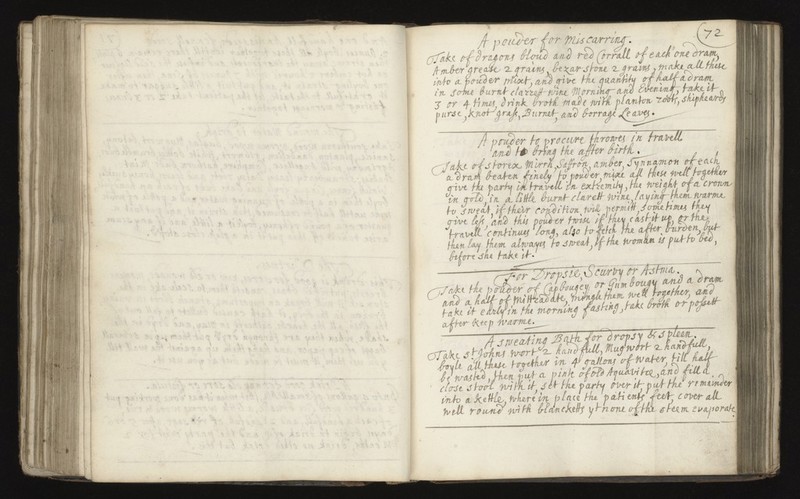 72
A pouder for Miscarring.
Take of dragons bloud and red Corrall of each one dram,
Amber grease 2 grains, bezar stone 2 grains, make all these
into a pouder mixt, and give the quantity of half a dram
in some burnt clarret wine Morning and Evening, take it
3 or 4 times, drink broth made with planton roots, shipheards
purse, knot grass, Burnet, and borrage Leaves.
A pouder to procure throwes in travell
and to bring the after birth.
Take of storix Mirrh, Saffron, amber, Synnamon of each
a dram beaten finely to pouder, mixe all these well together
give the party in travell in extremity, the weight of a crown
in gold, in a little burnt clarett wine, laying them warme
to sweat, if their condition will permitt, sometimes they
give less, and this pouder twise if they cast it up, or their
travell continues long, also to fetch the after burden, but
then lay them alwayes to sweat, if the woman is put to bed,
before she take it.
For Dropsie, Scurvy or Astma.
Take the pouder of Cambougey or Gumbougy and a dram
and a half of Mittradate, mingle them well together, and
take it early in the morning fasting, take broth or possett
after keep warme.
A sweating Bath for dropsy & spleen.
Take st Johns wort 2 handfull, Mugwort 2 handfull,
boyle all these together in 4 gallons of water, till half
be wasted, then put a pinte of old Aquavitæ, and fill a
close stool with it, set the party over it, put the remainder
into a kettle, where in place the patients feet, cover all
well round with blancketts yt none of the steam evaporate.